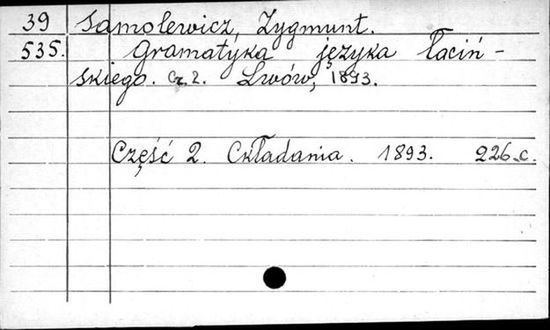 39 Samolewicz, Zygmunt.
535. Gramatyka języka łaciń-
skiego. Cz. 2. Lwów, 1893.
Część 2. Składania. 1893. 226 c.